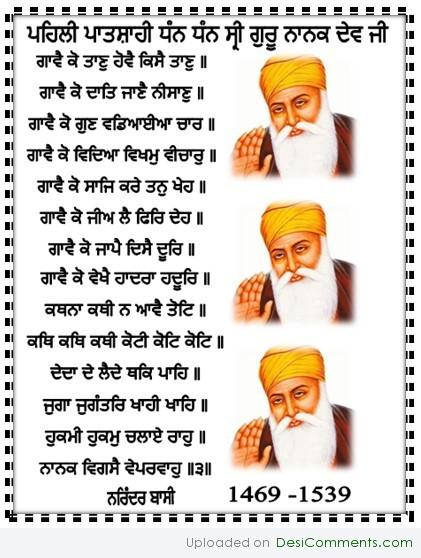 ਪਹਿਲੀ ਪਾਤਸ਼ਾਹੀ ਧੰਨ ਧੰਨ ਸ੍ਰੀ ਗੁਰੂ ਨਾਨਕ ਦੇਵ ਜੀ
ਗਾਵੈ ਕੋ ਤਾਣੁ ਹੋਵੈ ਕਿਸੈ ਤਾਣੁ ॥
ਗਾਵੈ ਕੋ ਦਾਤਿ ਜਾਣੈ ਨੀਸਾਣੁ ॥
ਗਾਵੈ ਕੋ ਗੁਣ ਵਡਿਆਈਆ ਚਾਰ ॥
ਗਾਵੈ ਕੋ ਵਿਦਿਆ ਵਿਖਮੁ ਵੀਚਾਰੁ ॥
ਗਾਵੈ ਕੋ ਸਾਜਿ ਕਰੇ ਤਨੁ ਖੇਹ ॥
ਗਾਵੈ ਕੋ ਜੀਅ ਲੈ ਫਿਰਿ ਦੇਹ ॥
ਗਾਵੈ ਕੋ ਜਾਪੈ ਦਿਸੈ ਦੂਰਿ ॥
ਗਾਵੈ ਕੋ ਵੇਖੈ ਹਾਦਰਾ ਹਦੂਰਿ ॥
ਕਥਨਾ ਕਥੀ ਨ ਆਵੈ ਤੋਟਿ ॥
ਕਥਿ ਕਥਿ ਕਥੀ ਕੋਟੀ ਕੋਟਿ ਕੋਟਿ ॥
ਦੇਦਾ ਦੇ ਲੈਦੇ ਥਕਿ ਪਾਹਿ ॥
ਜੁਗਾ ਜੁਗੰਤਰਿ ਖਾਹੀ ਖਾਹਿ ॥
ਹੁਕਮੀ ਹੁਕਮੁ ਚਲਾਏ ਰਾਹੁ ॥
ਨਾਨਕ ਵਿਗਸੈ ਵੇਪਰਵਾਹੁ ॥੩॥
ਨਰਿੰਦਰ ਬਾਸੀ 1469 -1539
Uploaded on DesiComments.com